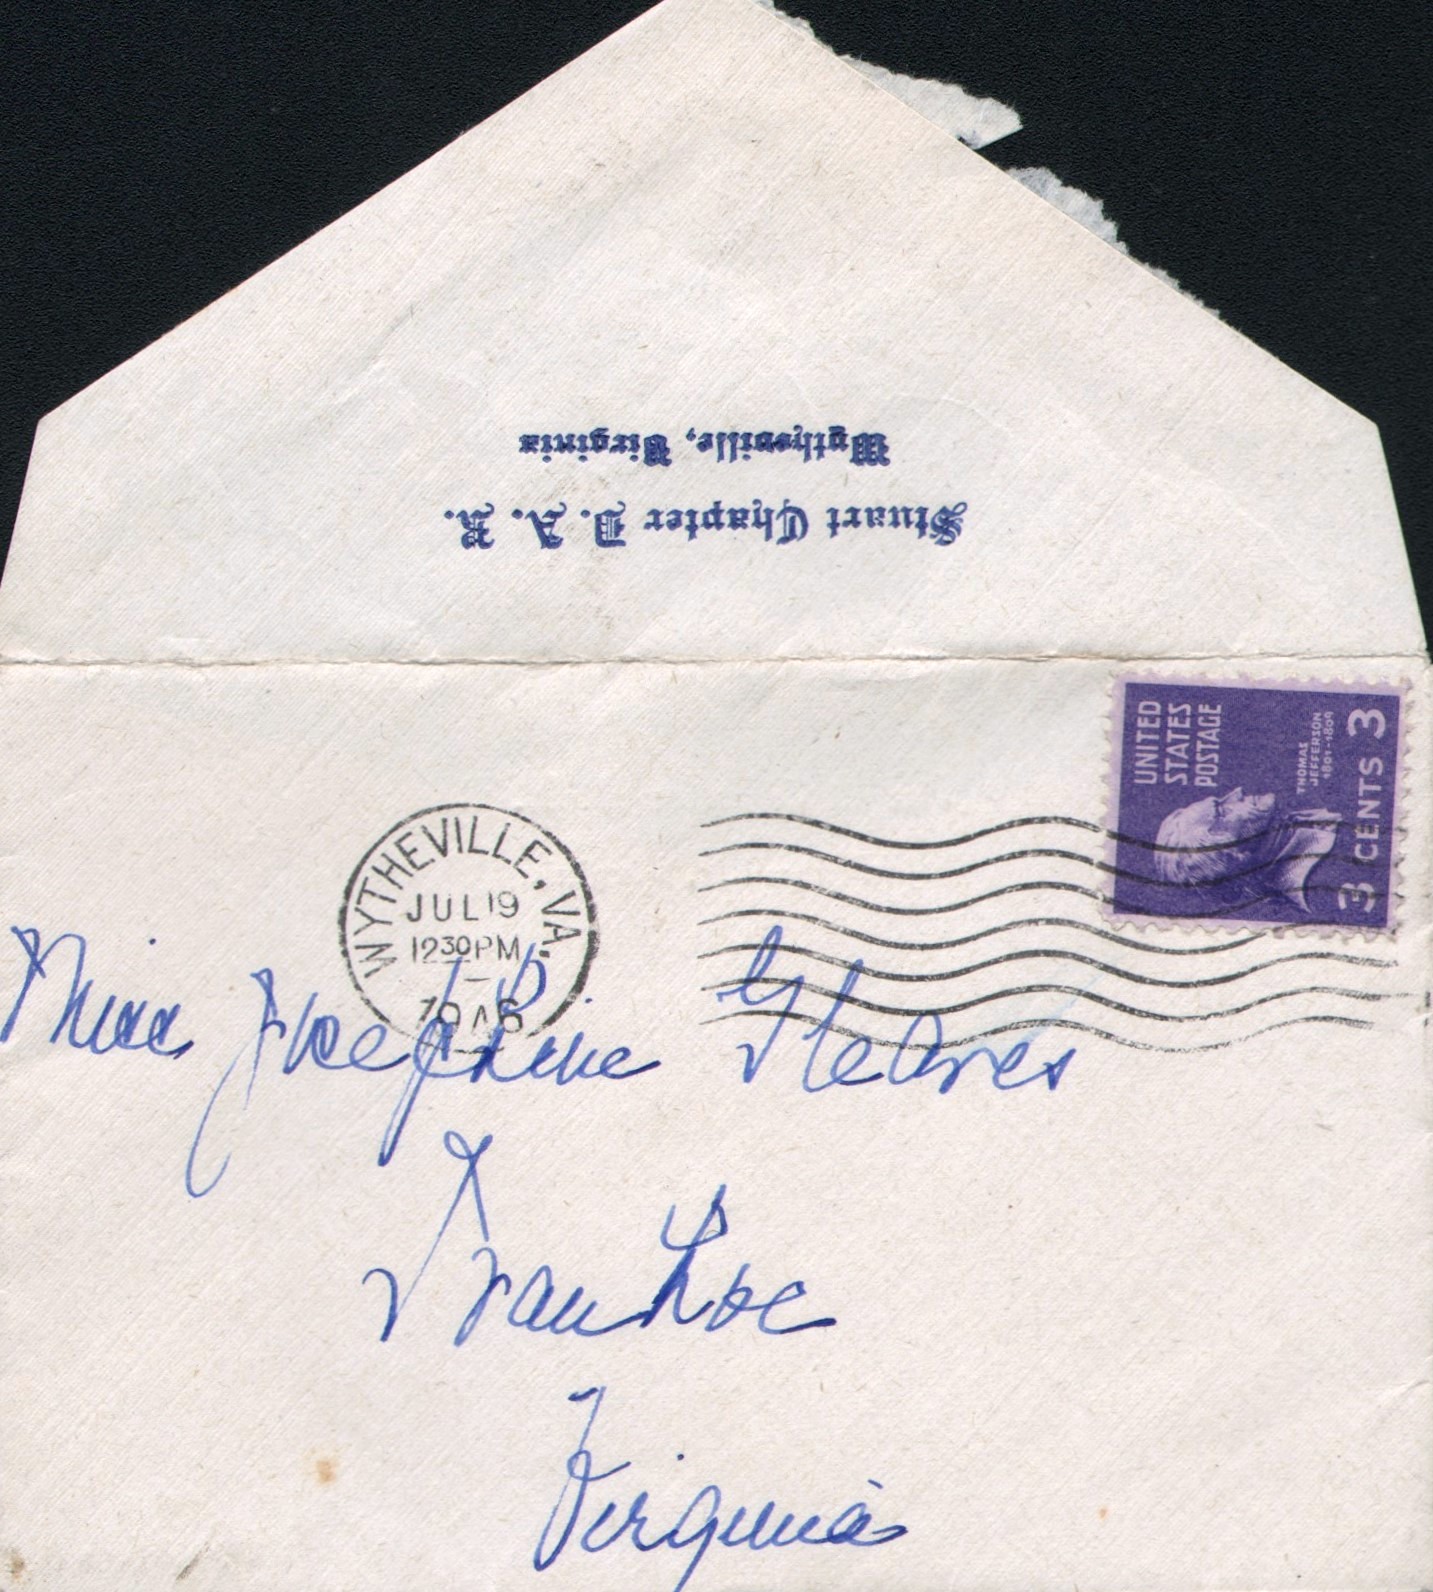 Stuart Chapter D. A. R.
Wytheville, Virginia
UNITED
STATES
POSTAGE
THOMAS
JEFFERSON
1801-1809
3 CENTS 3
WYTHEVILLE, VA.
JUL 19
12 30 PM
1946
Miss Josephine Gleaves
Ivanhoe
Virginia